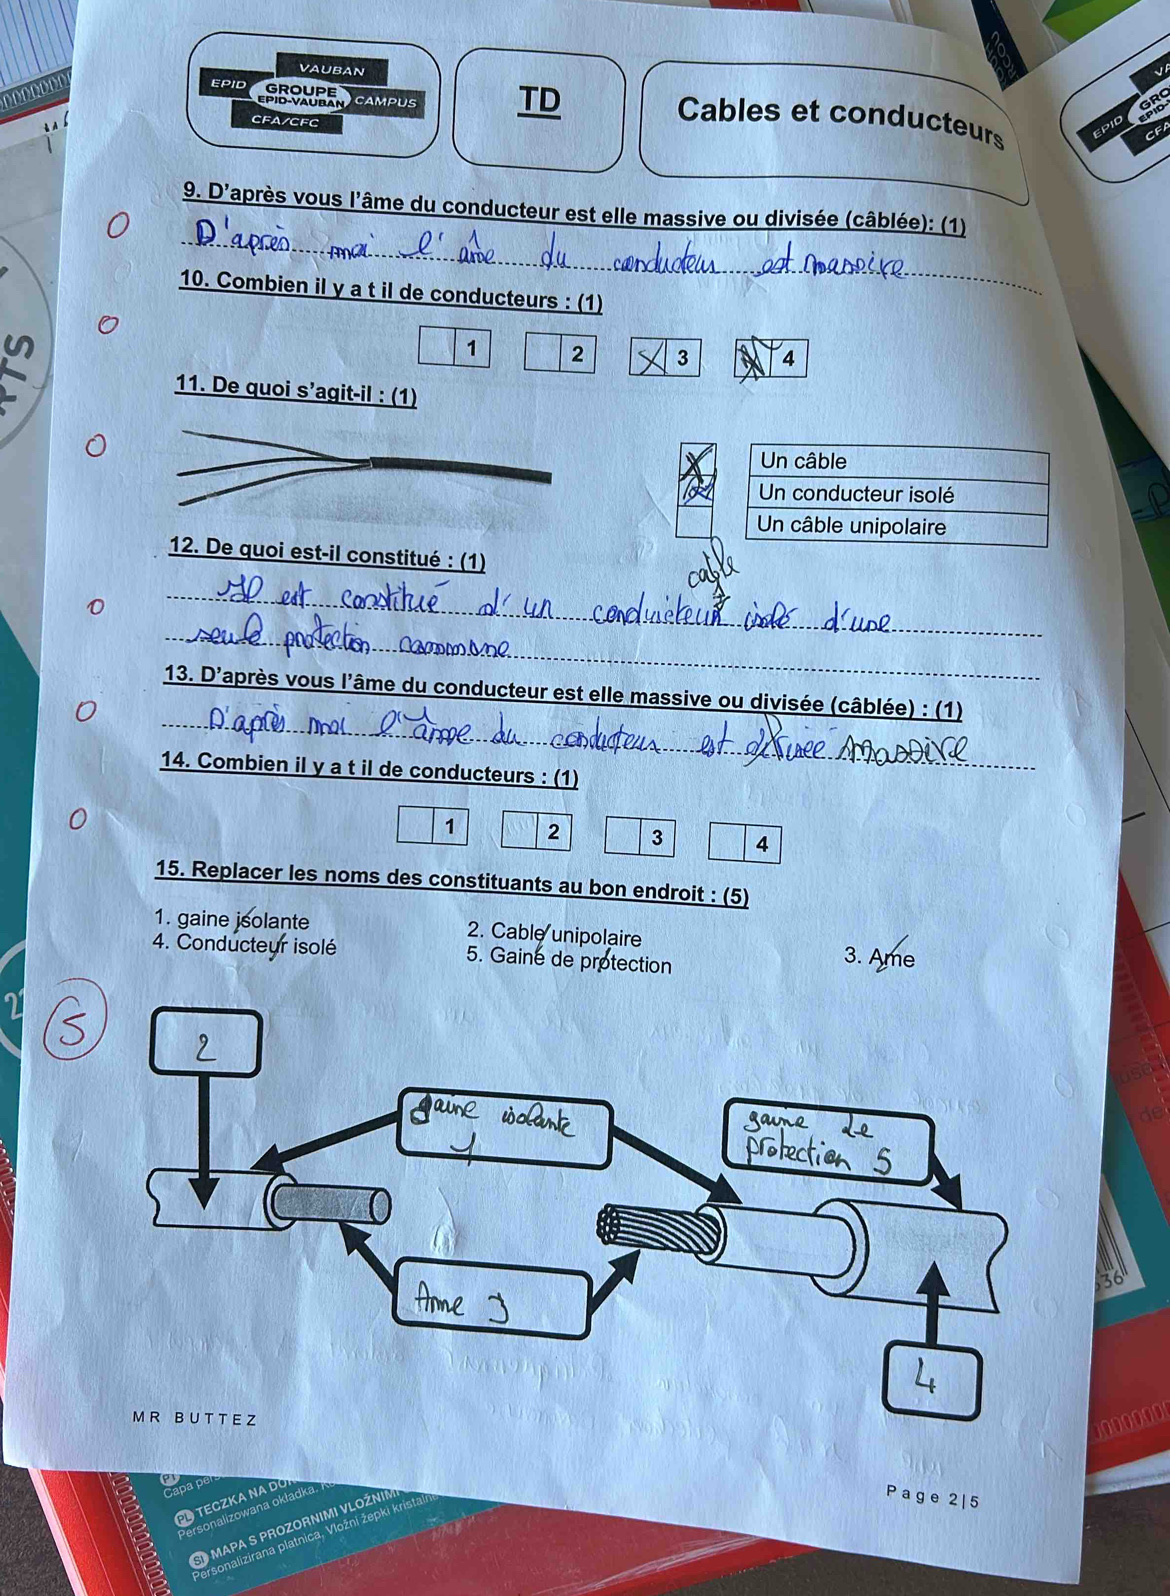 VAUBAN
EPID GROUPE EPID-VAUBAN CAMPUS
CFA/CFC
TD
Cables et conducteurs
9. D'après vous l'âme du conducteur est elle massive ou divisée (câblée): (1)
O
D'après moi l'âme du conducteur est massive
10. Combien il y a t il de conducteurs : (1)
O
1 2 X 3 4
11. De quoi s'agit-il : (1)
O
X Un câble
Un conducteur isolé
Un câble unipolaire
12. De quoi est-il constitué : (1)
cable
O
Il est constitué d'un conducteur isolé d'une
seule protection commune
13. D'après vous l'âme du conducteur est elle massive ou divisée (câblée) : (1)
O
D'après moi l'âme du conducteur est divisée massive
14. Combien il y a t il de conducteurs : (1)
O
1 2 3 4
15. Replacer les noms des constituants au bon endroit : (5)
1. gaine isolante 2. Cable unipolaire 3. Ame
4. Conducteur isolé 5. Gaine de protection
5
2
gaine isolante
1
gaine de
protection 5
Ame 3
4
MR BUTTEZ
Page 2|5
PL TECZKA NA DO
Personalizowana okładka.
SI MAPA S PROZORNIMI VLOŽNIMI
Personalizirana platnica, Vložni žepki kristalno
36